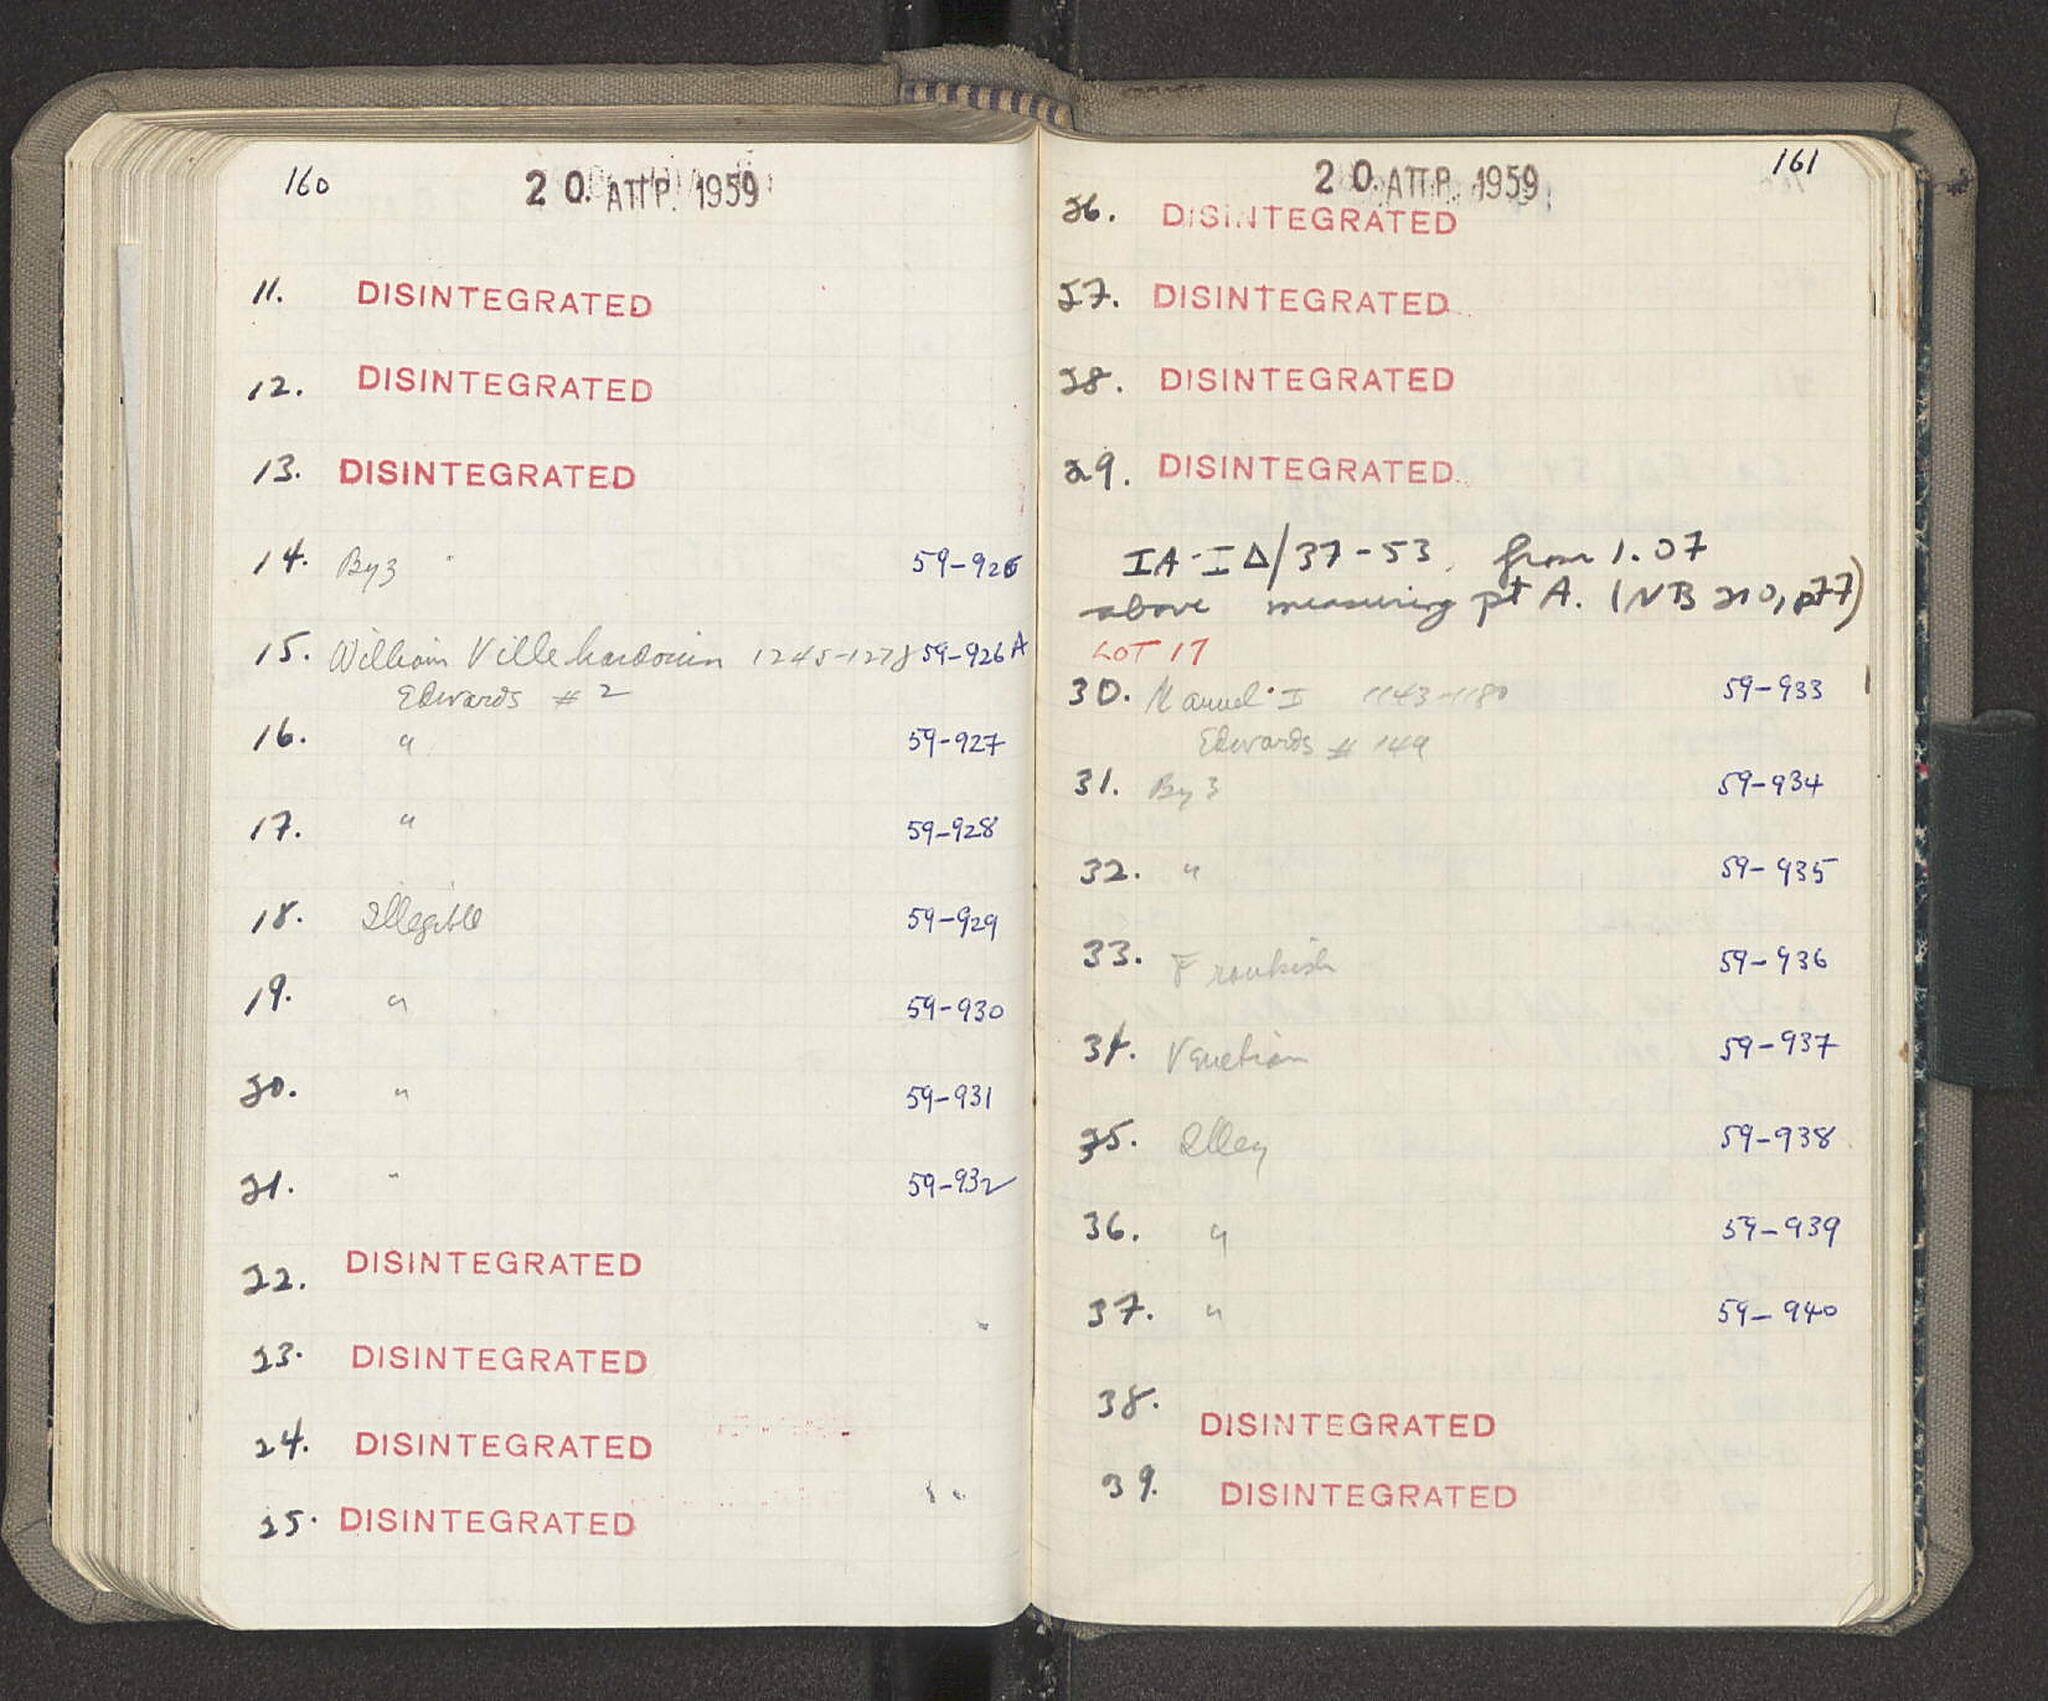 160
20. ΑΠΡ. 1959
11. DISINTEGRATED
12. DISINTEGRATED
13. DISINTEGRATED
14. Byz 59-926
15. William Villehardouin 1245-1278 59-926 A
Edwards # 2
16. " 59-927
17. " 59-928
18. Illegible 59-929
19. " 59-930
20. " 59-931
21. " 59-932
22. DISINTEGRATED
23. DISINTEGRATED
24. DISINTEGRATED
25. DISINTEGRATED
161
20. ΑΠΡ. 1959
26. DISINTEGRATED
27. DISINTEGRATED
28. DISINTEGRATED
29. DISINTEGRATED
ΙΑ-ΙΔ/37-53, from 1.07
above measuring pt A. (NB 210, p77)
LOT 17
30. Manuel I 1143-1180 59-933
Edwards # 149
31. Byz 59-934
32. " 59-935
33. Frankish 59-936
34. Venetian 59-937
35. Illeg 59-938
36. " 59-939
37. " 59-940
38. DISINTEGRATED
39. DISINTEGRATED